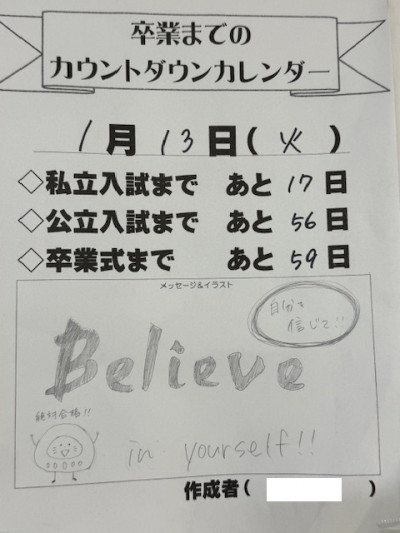 卒業までの
カウントダウンカレンダー
1月13日(火)
◇私立入試まで あと17日
◇公立入試まで あと56日
◇卒業式まで あと59日
メッセージ&イラスト
自分を
信じて!!
Believe
絶対合格!!
in yourself!!
作成者( )